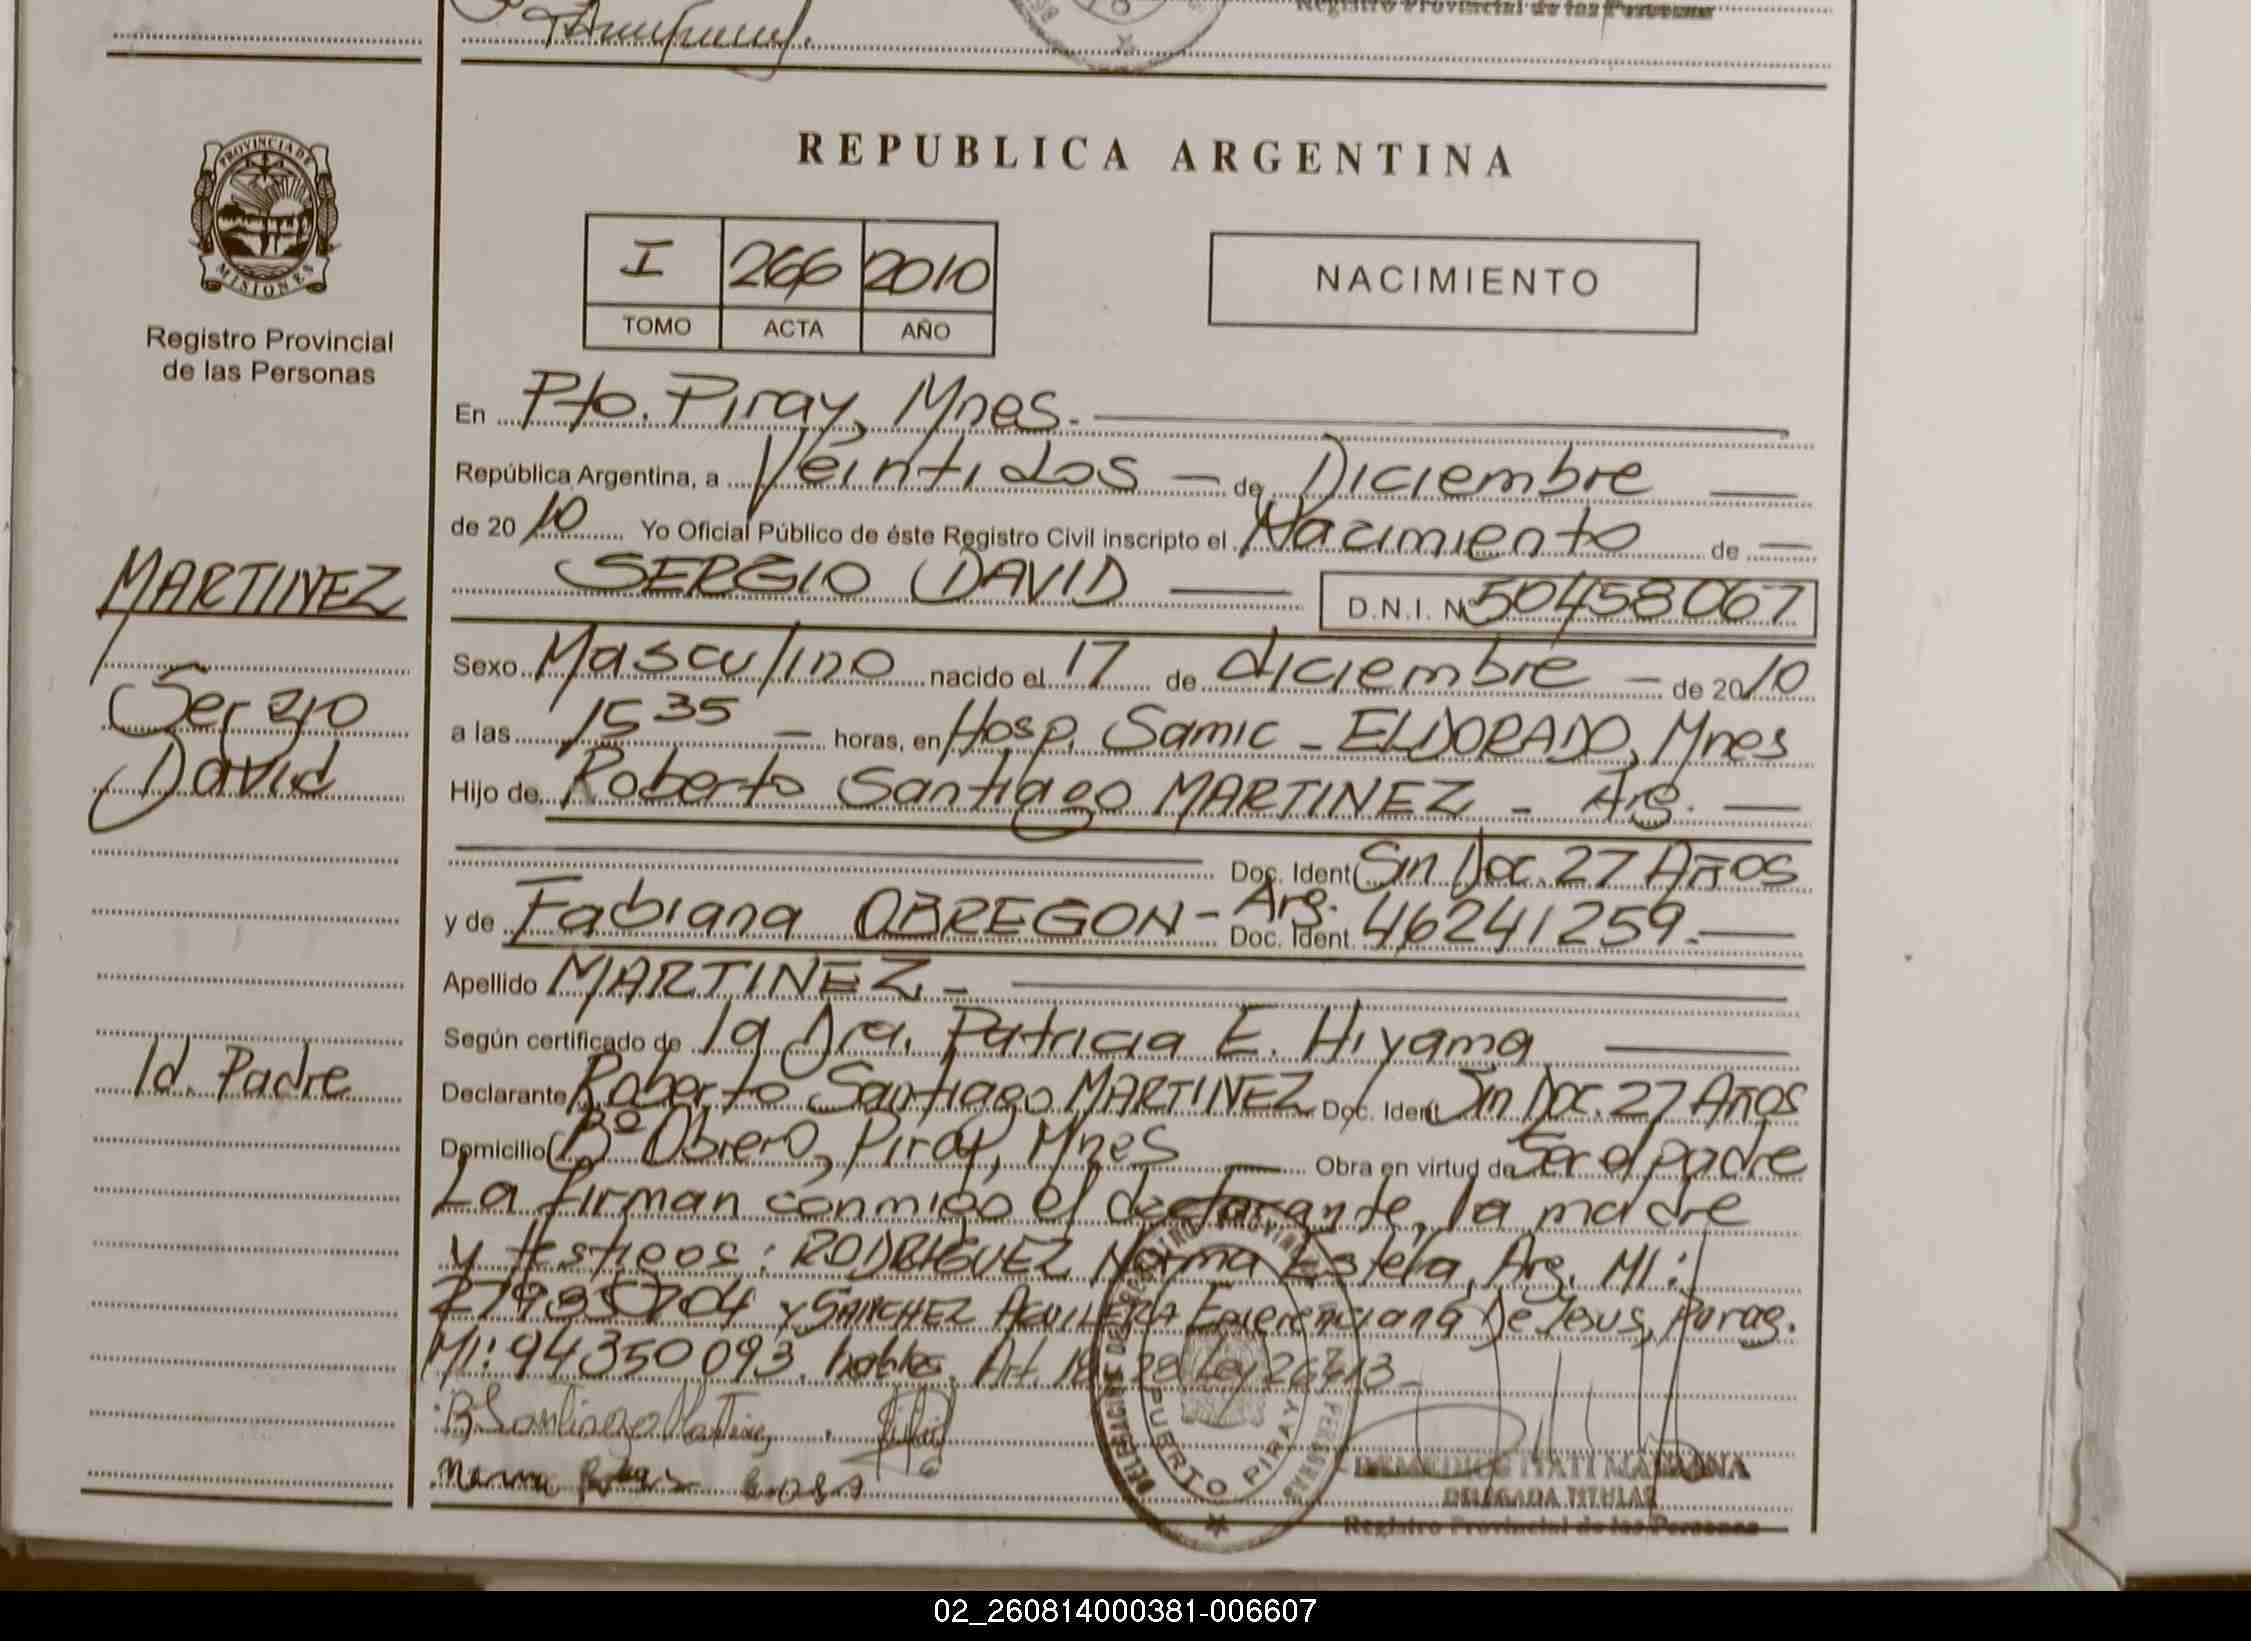 Registro Provincial de las Personas
PROVINCIA DE
MISIONES
Registro Provincial
de las Personas
REPUBLICA ARGENTINA
I 266 2010
TOMO ACTA AÑO
NACIMIENTO
En Pto. Piray, Mnes.
República Argentina, a Veintidos — de Diciembre —
de 2010 Yo Oficial Público de éste Registro Civil inscripto el Nacimiento de —
SERGIO DAVID — D.N.I. Nº 50458067
MARTINEZ
Sergio
David
Id. Padre
Sexo Masculino nacido el 17 de diciembre — de 2010
a las 15 35 — horas, en Hosp. Samic - ELDORADO, Mnes
Hijo de Roberto Santiago MARTINEZ - Arg. —
Doc. Ident Sin Doc. 27 Años
y de Fabiana OBREGON - Arg. Doc. Ident. 46241259.—
Apellido MARTINEZ -
Según certificado de la Dra. Patricia E. Hiyama —
Declarante Roberto Santiago MARTINEZ Doc. Ident Sin Doc. 27 Años
Domicilio Bº Obrero, Piray, Mnes — Obra en virtud de Ser el padre
La firman conmigo el declarante, la madre
y testigos: RODRIGUEZ Norma Estela, Arg. MI:
27935704 y SANCHEZ AGUILERA Emerenciana De Jesus, Parag.
MI: 94350093. Art. 18 28 Ley 26413 -
R Santiago Martinez
PUERTO PIRAY
DELEGADA TITULAR
Registro Provincial de las Personas
02_260814000381-006607